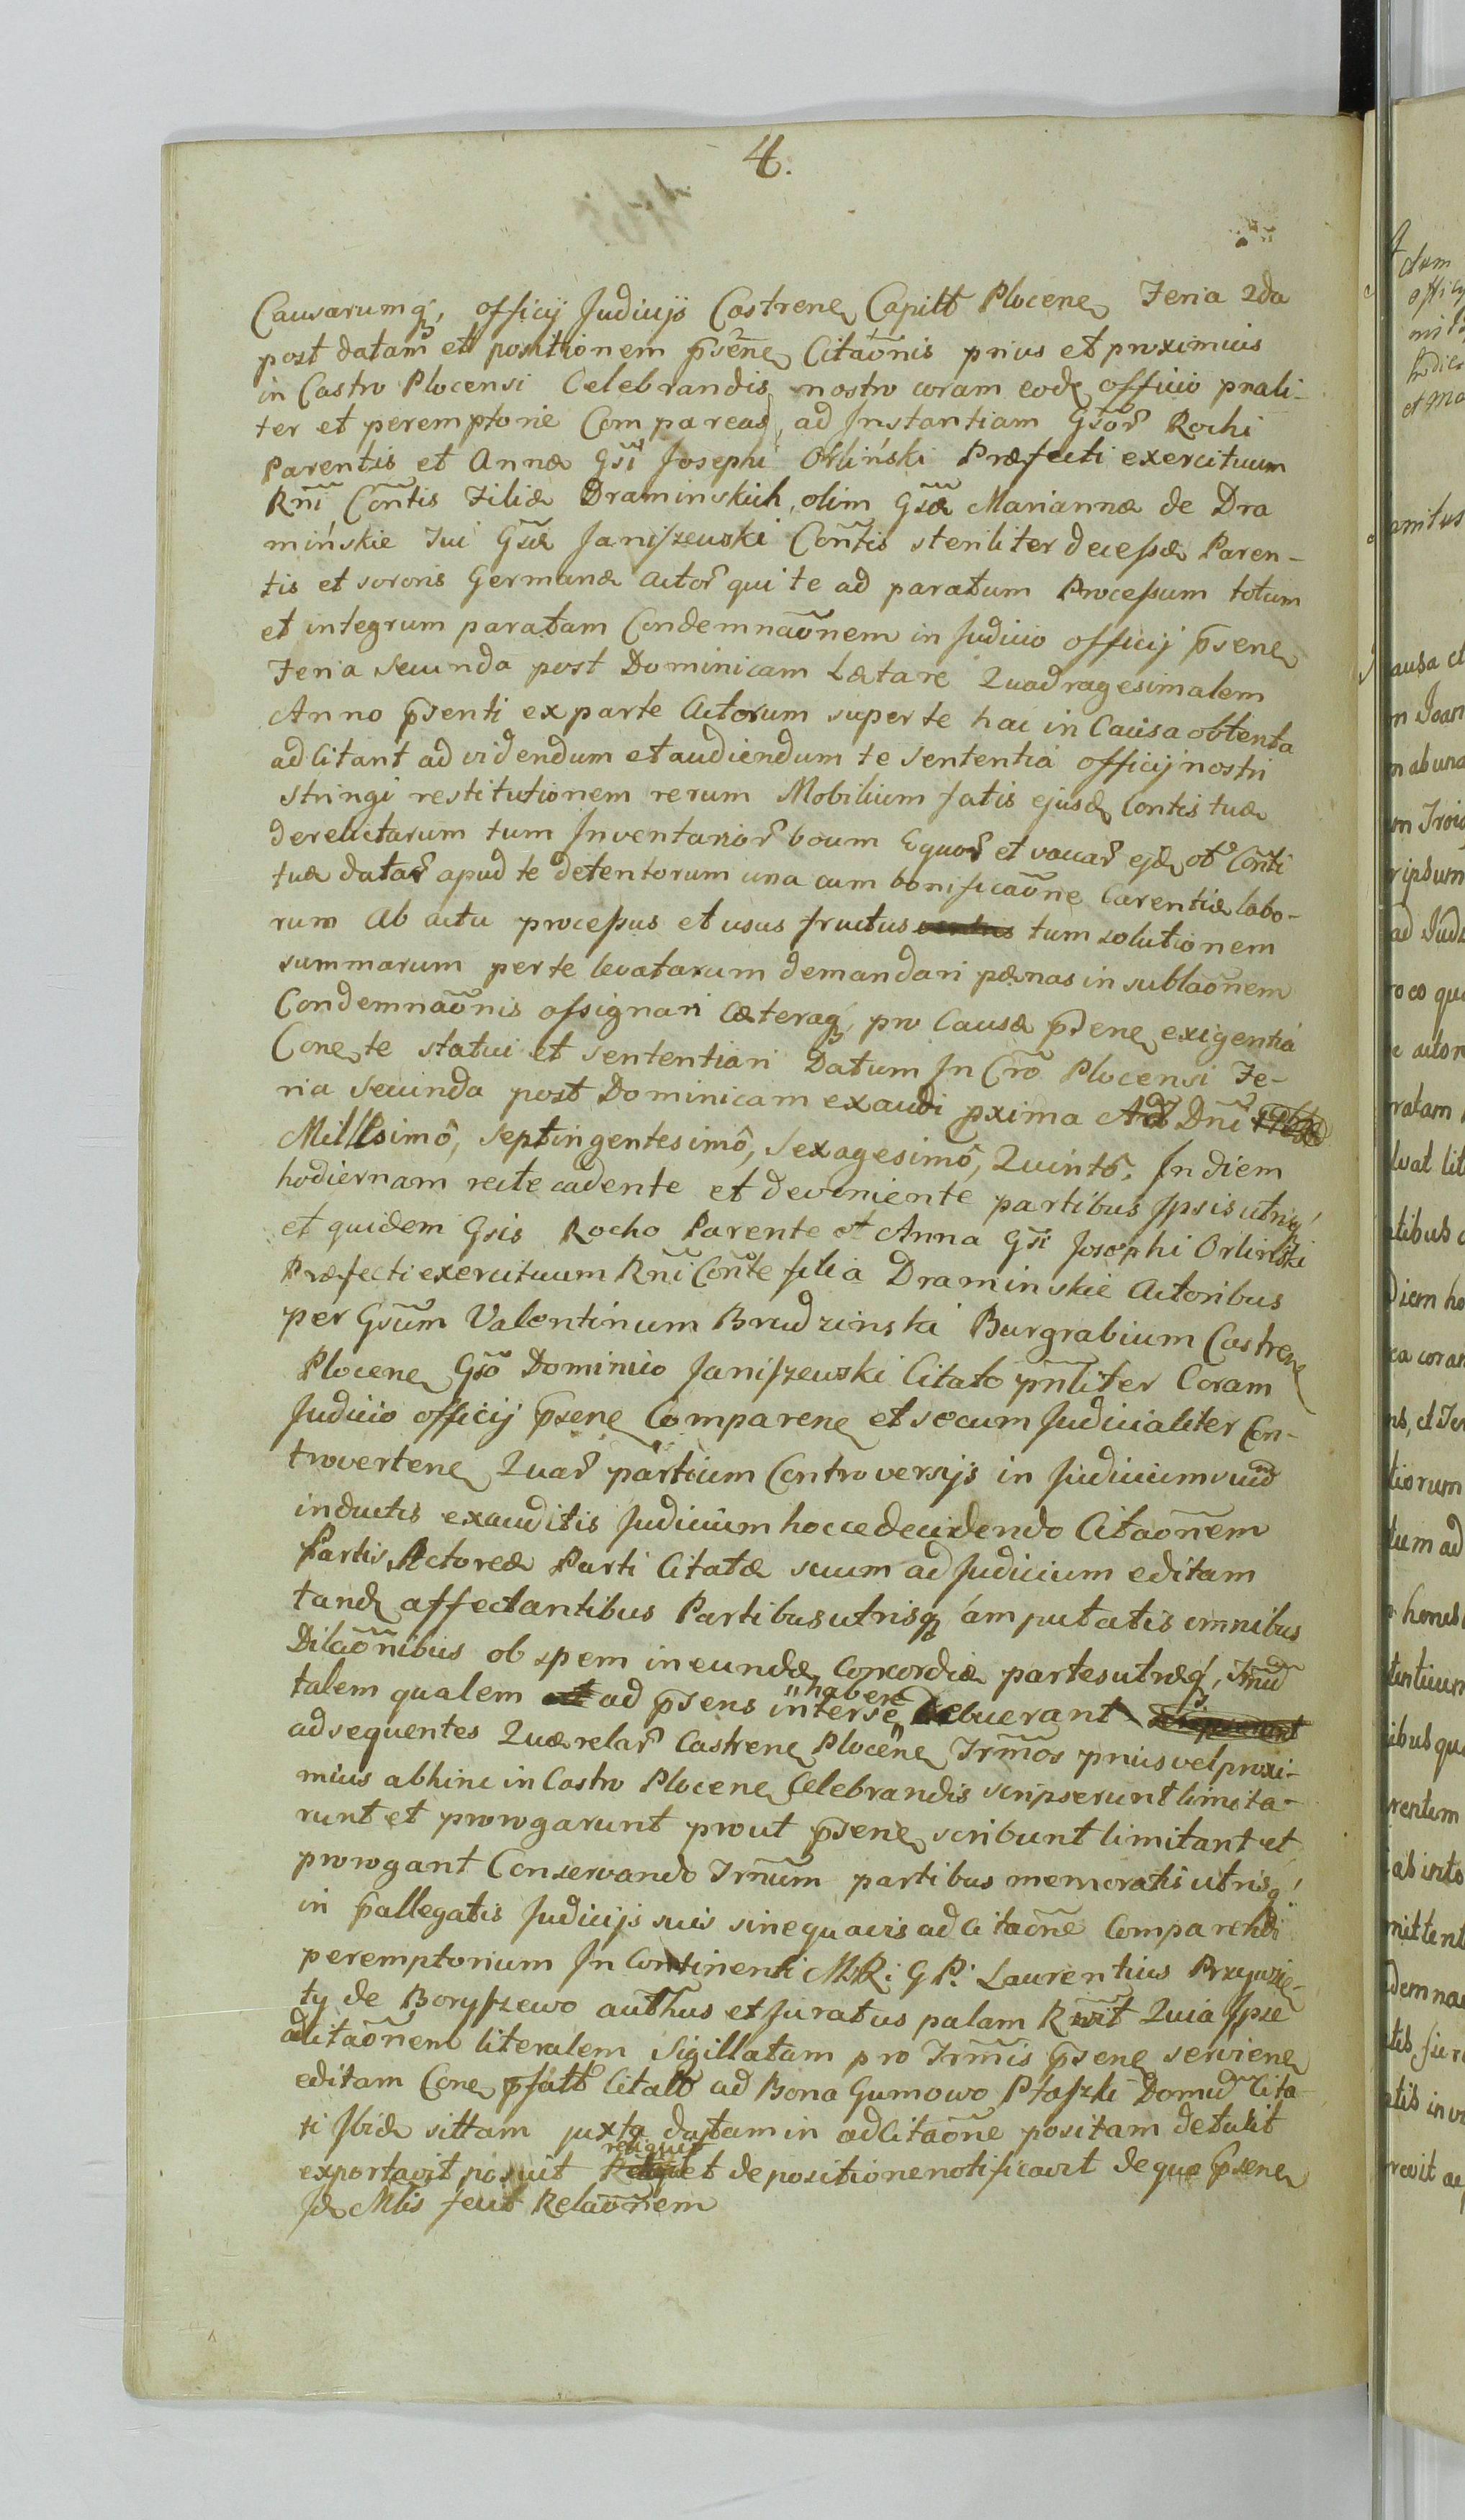 4.
Causarumq, officij Judicijs Castrene Capitt Plocene Feria 2da
post datam et positionem psene Citaonis prius et proximius
in Castro Plocensi Celebrandis nostro coram eode officio prali-
ter et peremptorie Compareas, ad Instantiam Gsor Rochi
Parentis et Annæ Gsi Josephi Orliński Præfecti exercituum
Rni Contis Filiæ Draminskich, olim Gsæ Mariannæ de Dra
mińskie Tui Gsæ Janiszewski Contis steriliter decessæ Paren-
tis et sororis Germanæ actor qui te ad paratum Processum totum
et integrum paratam Condemnaonem in Judicio officij psene
Feria Secunda post Dominicam Lætare Quadragesimalem
Anno psenti ex parte Actorum super te hac in Causa obtenta
adCitant ad videndum et audiendum te sententiá officij nostri
stringi restitutionem rerum Mobilium fatis ejusd contis tuæ
derelictarum tum Inventarior boum Equor et vaccar ejd ob Conti
tuæ datar apud te detentorum una cum bonificaone Carentiæ labo-
rum ab actu processus et usus fructus tum solutionem
summarum per te levatarum demandari pænas in sublaonem
Condemnaonis assignari Cæteraq, pro Causæ psene exigentiá
Cone te statui et sententiari Datum In Cro Plocensi Fe-
ria Secunda post Dominicam exaudi pxima Ad Dni
Millsimô, Septingentesimô, Sexagesimô, Quintô. In diem
hodiernam recte cadente et deveniente partibus Ipsis utrisq
et quidem Gsis Rocho Parente et Anna Gsi Josephi Orlinski
Præfecti exercituum Rni Conte filia Draminskie Actoribus
per Gsum Valentinum Brudzinski Burgrabium Castrene
Plocene Gso Dominico Janiszewski Citato pnliter Coram
Judicio officij psene Comparene et secum Judicialiter Con-
trovertene Quar partium Controversijs in Judicium suud
inductis exauditis Judicium hocce decidendo Citaonem
Partis Actoreæ Parti Citatæ suum ad Judicium editam
tand affectantibus Partibus utrisq amputatis omnibus
Dilaonibus ob spem ineundæ Concordiæ partes utræq, Trnud
talem qualem ad psens inter se habere debuerant
ad sequentes Quærelar Castrene Plocene Trmos prius vel proxi-
mius abhinc in Castro Plocene Celebrandis scripserunt limita-
runt et prorogarunt prout psene scribunt limitant et
prorogant Conservando Trnum partibus memoratis utrisq
in pallegatis Judicijs suis sine quavis adCitaone Comparendi
peremptorium In Continenti MR: GP: Laurentius
ty de Boryszewo authus et Juratus palam Rvit Quia Ipse
adCitaonem literalem Sigillatam pro Trmis psene serviene
editam Cone pfatt Citatt ad Bona Gumowo Ptaszki Domud Cita-
ti Ibid sittam juxta datam in adCitaone positam detulit
exportavit posuit reliquit et de positione notificavit de quo psene
Jd Mlis fecit Relaonem